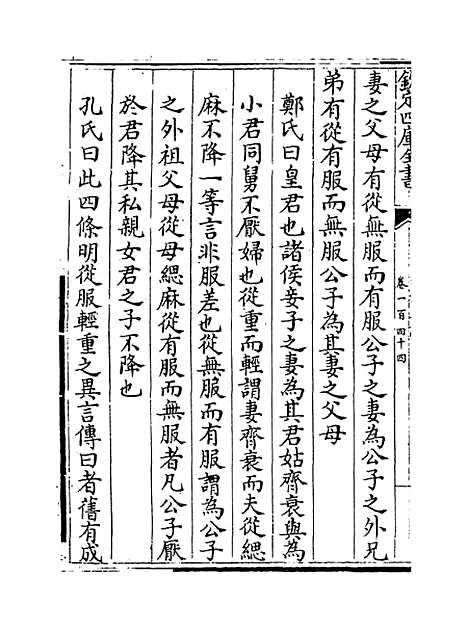 欽定四庫全書
卷一百四十四
妻之父母有從無服而有服公子之妻為公子之外兄
弟有從有服而無服公子為其妻之父母
鄭氏曰皇君也諸侯妾子之妻為其君姑齊衰與為
小君同舅不厭婦也從重而輕謂妻齊衰而夫從緦
麻不降一等言非服差也從無服而有服謂為公子
之外祖父母從母緦麻從有服而無服者凡公子厭
於君降其私親女君之子不降也
孔氏曰此四條明從服輕重之異言傳曰者舊有成